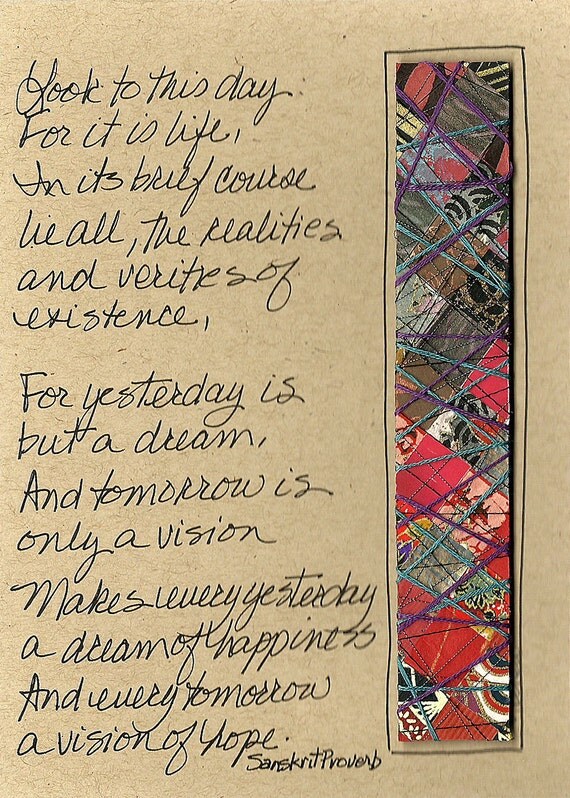 Look to this day.
For it is life,
In its brief course
lie all, the realities
and verities of
existence,
For yesterday is
but a dream,
And tomorrow is
only a vision
Makes every yesterday
a dream of happiness
And every tomorrow
a vision of hope.
Sanskrit Proverb